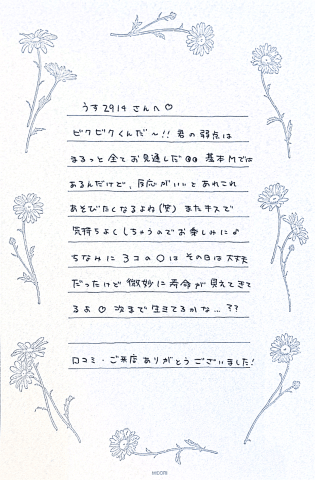 うす2914 さんへ♡
ビクビクくんだ〜!! 君の弱点は
まるっと全てお見通しだ👀 基本Mでは
あるんだけど、反応がいいとあれこれ
あそびたくなるよね(笑) またキスで
気持ちよくしちゃうのでお楽しみに♂
ちなみに 3コの〇は その日は大丈夫
だったけど 微妙に寿命が見えてきて
るよ☺ 次まで生きてるかな…??
口コミ・ご来店ありがとうございました!